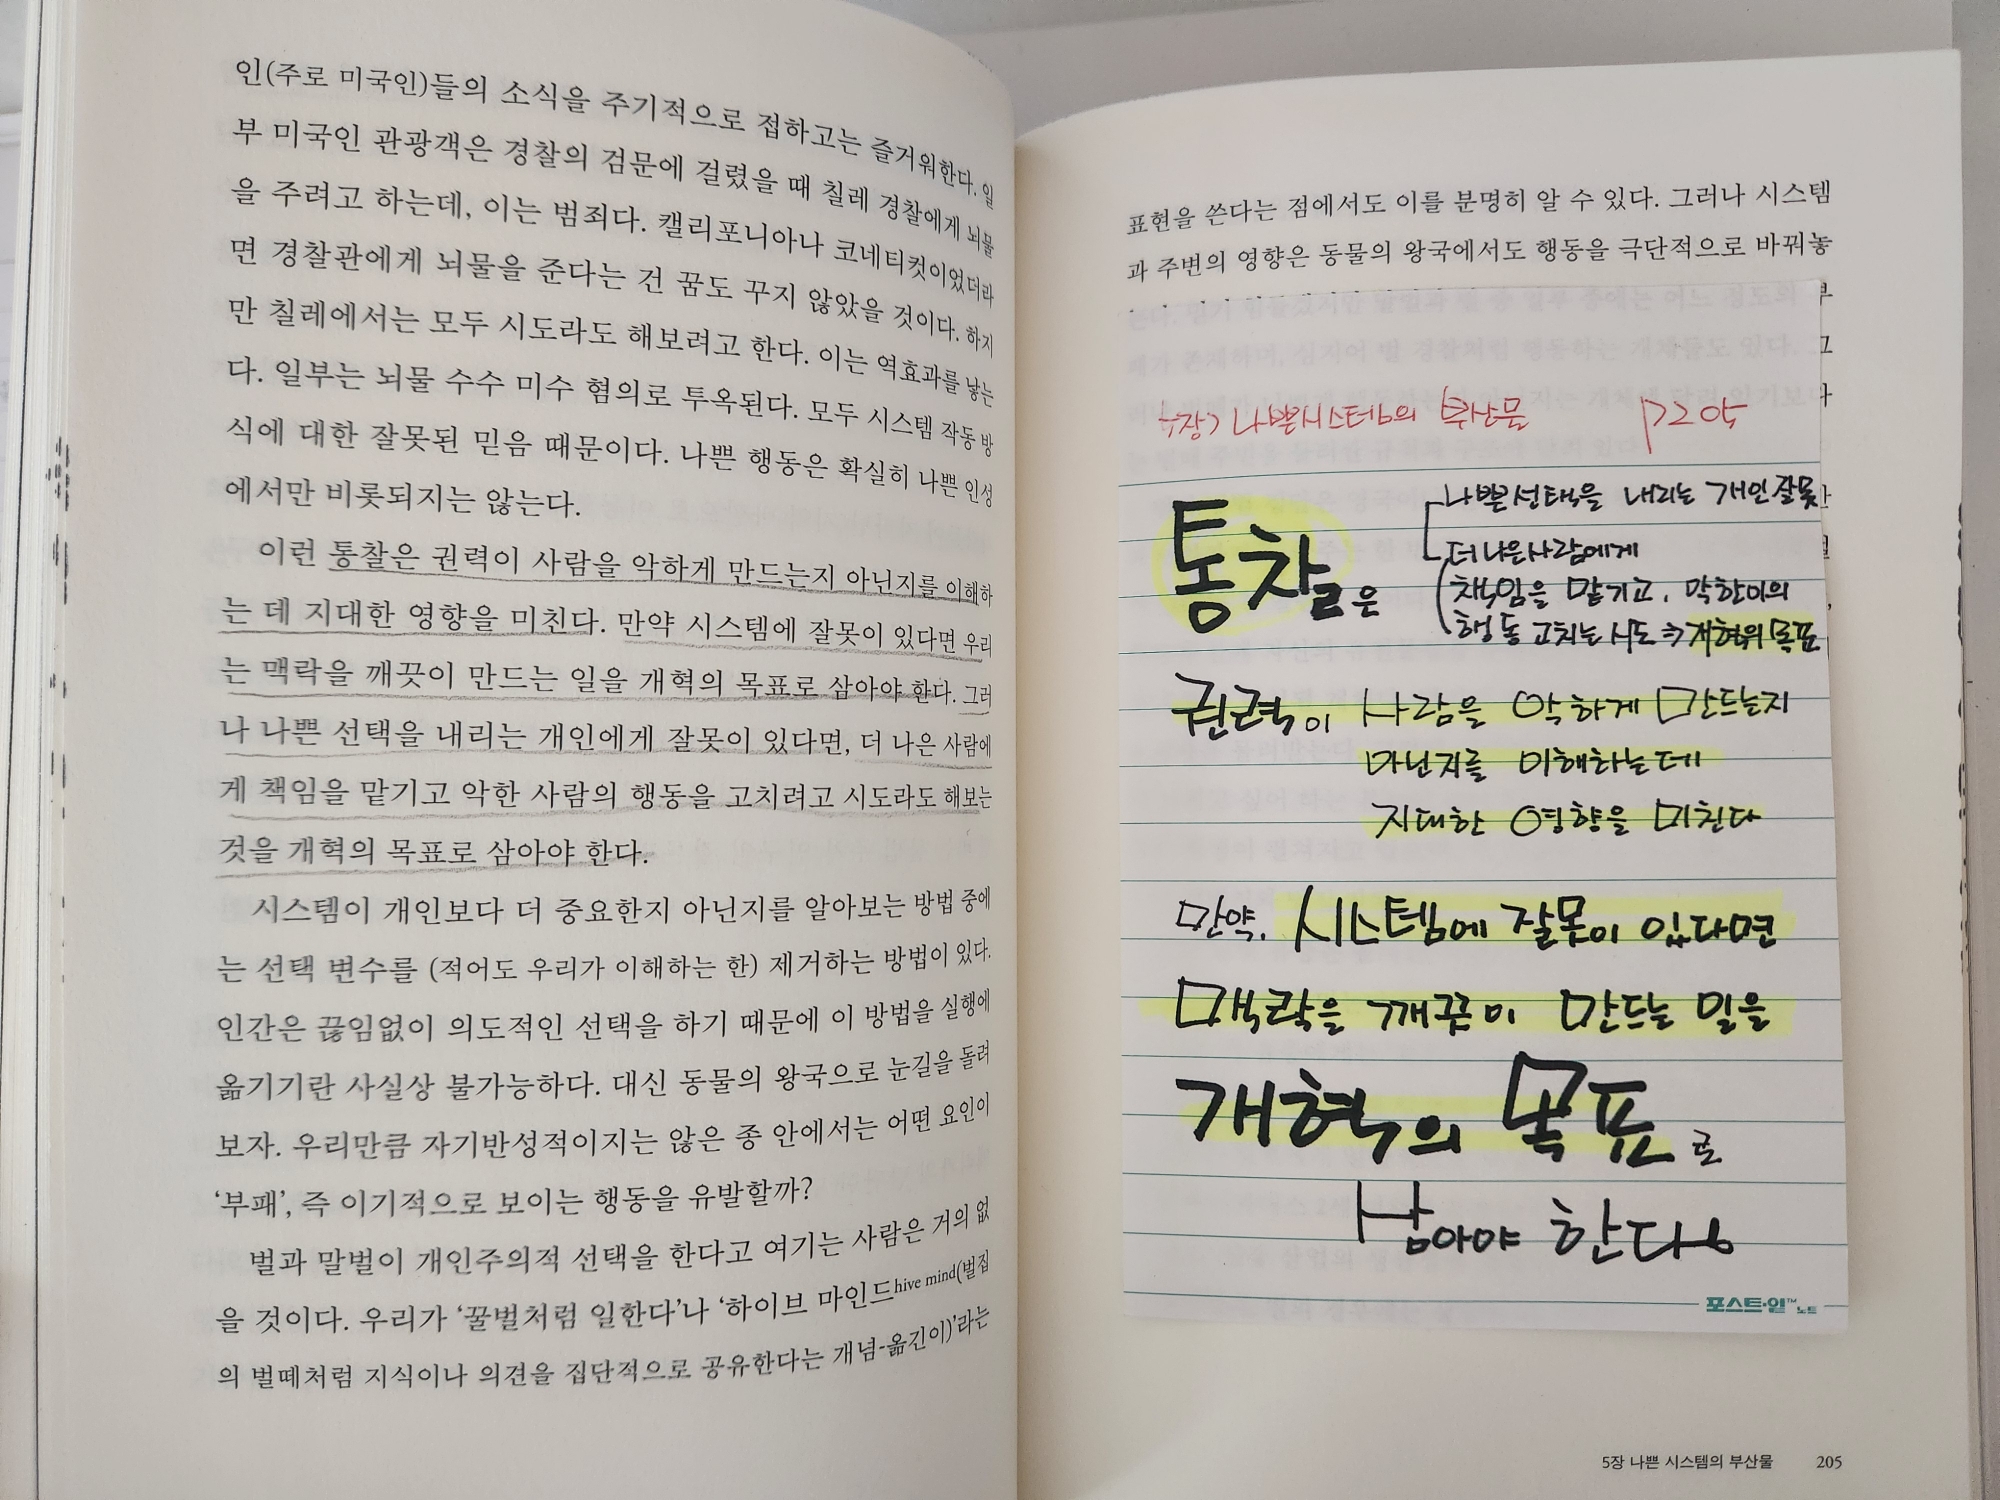 인(주로 미국인)들의 소식을 주기적으로 접하고는 즐거워한다. 일
부 미국인 관광객은 경찰의 검문에 걸렸을 때 칠레 경찰에게 뇌물
을 주려고 하는데, 이는 범죄다. 캘리포니아나 코네티컷이었더라
면 경찰관에게 뇌물을 준다는 건 꿈도 꾸지 않았을 것이다. 하지
만 칠레에서는 모두 시도라도 해보려고 한다. 이는 역효과를 낳는
다. 일부는 뇌물 수수 미수 혐의로 투옥된다. 모두 시스템 작동 방
식에 대한 잘못된 믿음 때문이다. 나쁜 행동은 확실히 나쁜 인성
에서만 비롯되지는 않는다.
이런 통찰은 권력이 사람을 악하게 만드는지 아닌지를 이해하
는 데 지대한 영향을 미친다. 만약 시스템에 잘못이 있다면 우리
는 맥락을 깨끗이 만드는 일을 개혁의 목표로 삼아야 한다. 그러
나 나쁜 선택을 내리는 개인에게 잘못이 있다면, 더 나은 사람에
게 책임을 맡기고 악한 사람의 행동을 고치려고 시도라도 해보는
것을 개혁의 목표로 삼아야 한다.
시스템이 개인보다 더 중요한지 아닌지를 알아보는 방법 중에
는 선택 변수를 (적어도 우리가 이해하는 한) 제거하는 방법이 있다.
인간은 끊임없이 의도적인 선택을 하기 때문에 이 방법을 실행에
옮기기란 사실상 불가능하다. 대신 동물의 왕국으로 눈길을 돌려
보자. 우리만큼 자기반성적이지는 않은 종 안에서는 어떤 요인이
‘부패’, 즉 이기적으로 보이는 행동을 유발할까?
벌과 말벌이 개인주의적 선택을 한다고 여기는 사람은 거의 없
을 것이다. 우리가 ‘꿀벌처럼 일한다’나 ‘하이브 마인드hive mind(벌집
의 벌떼처럼 지식이나 의견을 집단적으로 공유한다는 개념-옮긴이)’라는
표현을 쓴다는 점에서도 이를 분명히 알 수 있다. 그러나 시스템
과 주변의 영향은 동물의 왕국에서도 행동을 극단적으로 바꿔놓
5장> 나쁜시스템의 부산물 P205
통찰은
나쁜선택을 내리는 개인잘못
더 나은사람에게
책임을 맡기고, 악한이의
행동 고치는 시도 → 개혁의 목표
권력이 사람을 악하게 만드는지
아닌지를 이해하는데
지대한 영향을 미친다
만약, 시스템에 잘못이 있다면
맥락을 깨끗이 만드는 일을
개혁의 목표로
삼아야 한다.
포스트-잇™ 노트
5장 나쁜 시스템의 부산물 205